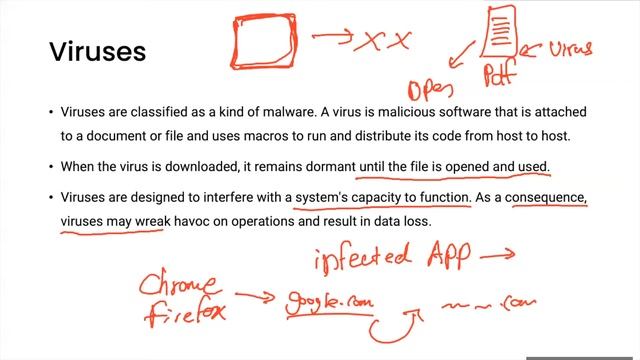 Viruses
XX
Open
Pdf
Virus
• Viruses are classified as a kind of malware. A virus is malicious software that is attached
to a document or file and uses macros to run and distribute its code from host to host.
• When the virus is downloaded, it remains dormant until the file is opened and used.
• Viruses are designed to interfere with a system's capacity to function. As a consequence,
viruses may wreak havoc on operations and result in data loss.
infected APP
Chrome
firefox
google.com
.com